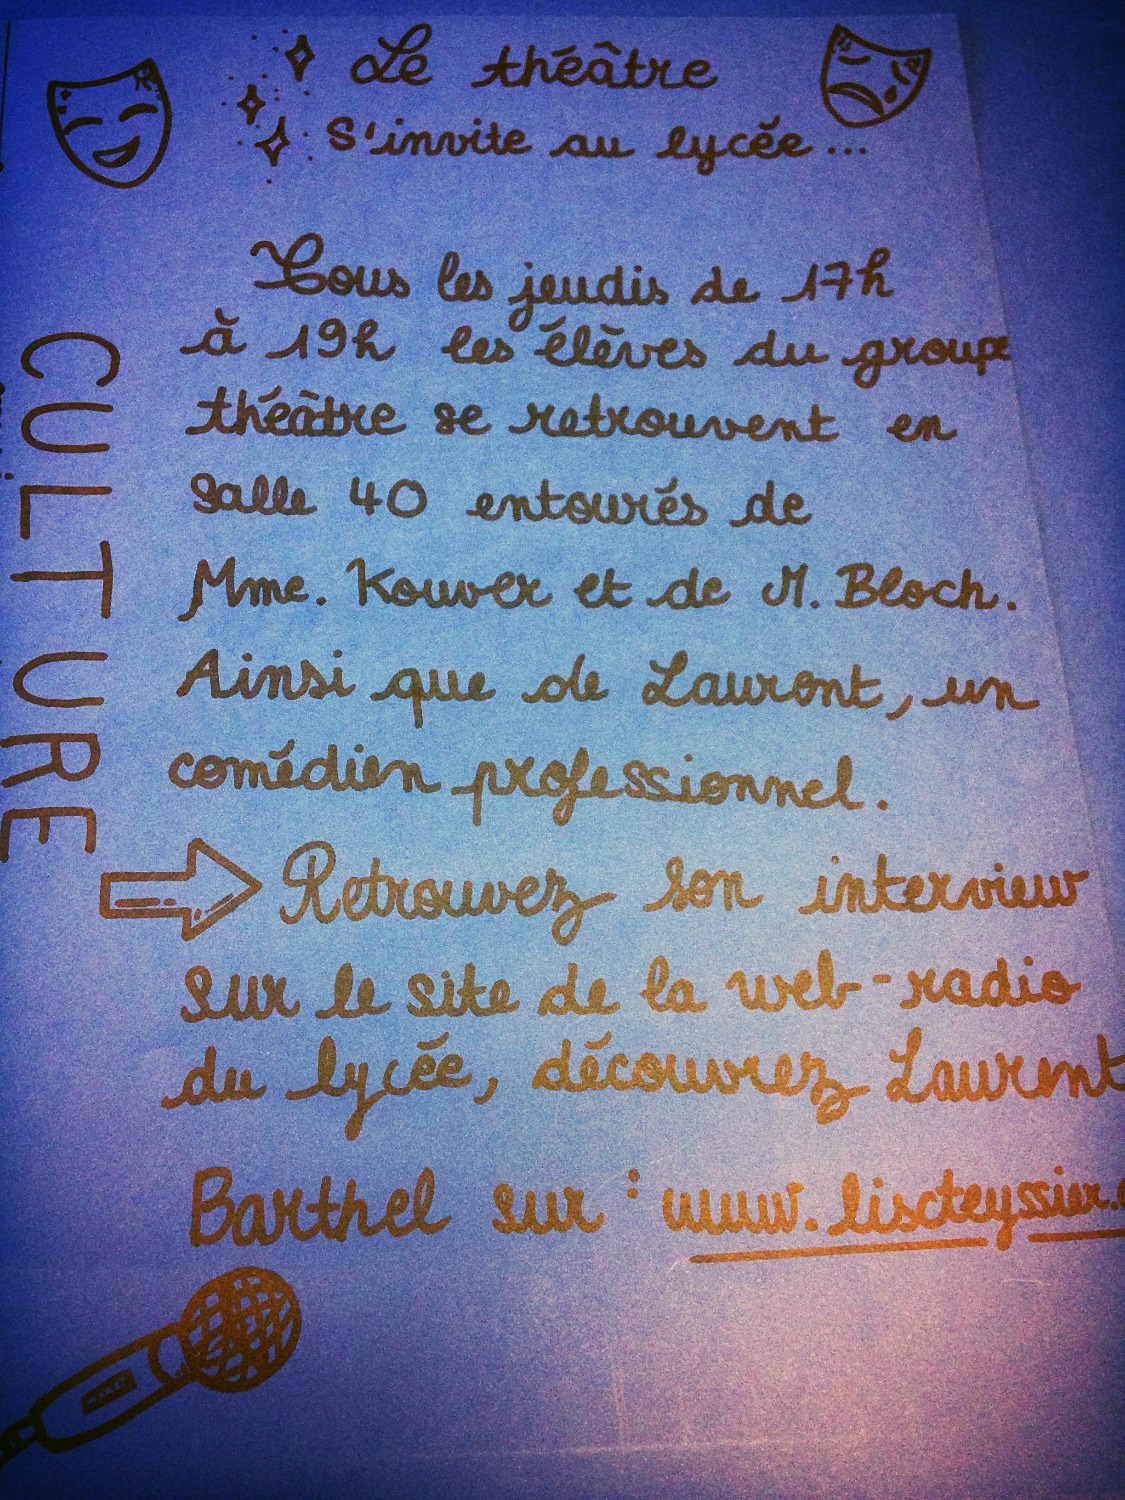 Le théâtre
S'invite au lycée...
CULTURE
Tous les jeudis de 17h
à 19h les élèves du groupe
théâtre se retrouvent en
salle 40 entourés de
Mme. Kouver et de M. Bloch.
Ainsi que de Lauront, un
comédien professionnel.
Retrouvez son interview
sur le site de la web-radio
du lycée, découvrez Laurent
Barthel sur : www.liscteyssier.